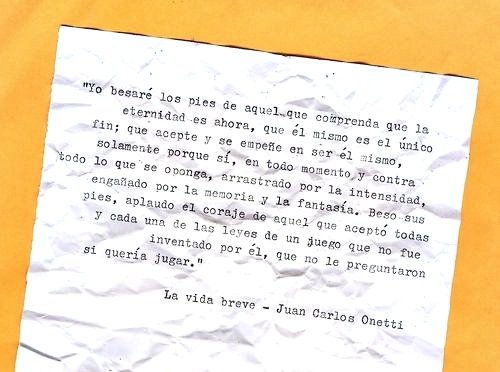 "Yo besaré los pies de aquel que comprenda que la
eternidad es ahora, que él mismo es el único
fin; que acepte y se empeñe en ser él mismo,
solamente porque sí, en todo momento y contra
todo lo que se oponga, arrastrado por la intensidad,
engañado por la memoria y la fantasía. Beso sus
pies, aplaudo el coraje de aquel que aceptó todas
y cada una de las leyes de un juego que no fue
inventado por él, que no le preguntaron
si quería jugar."
La vida breve - Juan Carlos Onetti